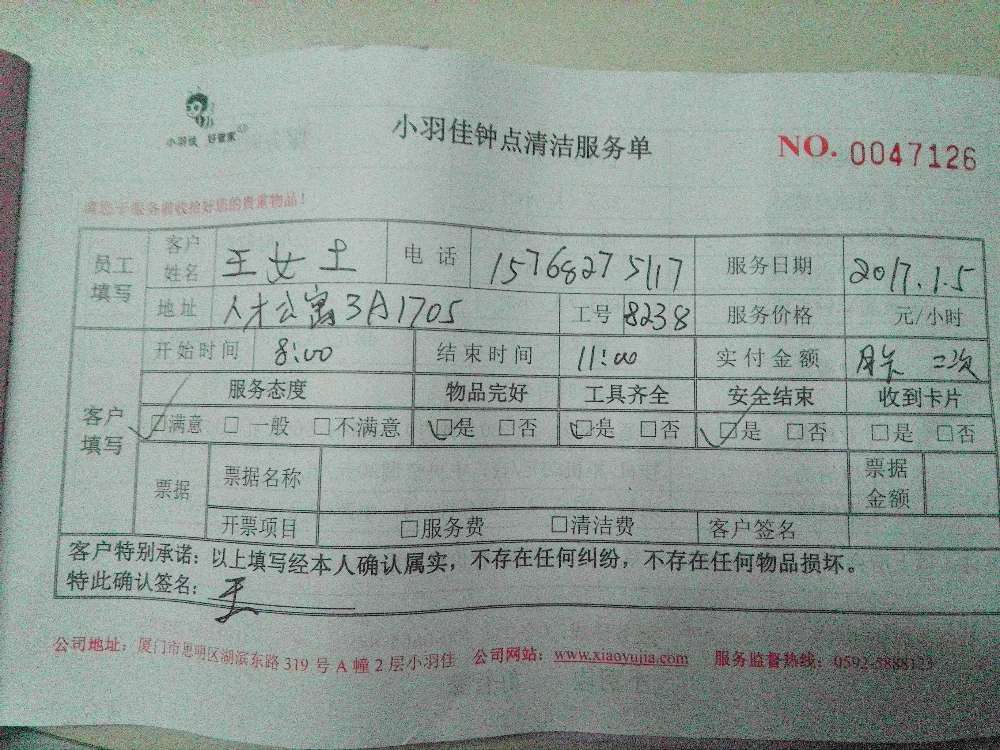 小羽佳 好管家
小羽佳钟点清洁服务单
NO. 0047126
请您于服务前收拾好您的贵重物品！
员工填写 客户姓名 王女士 电话 15768275117 服务日期 2017.1.5
地址 人才公寓3A1705 工号 8238 服务价格 元/小时
客户填写 开始时间 8:00 结束时间 11:00 实付金额 月卡 二次
服务态度 物品完好 工具齐全 安全结束 收到卡片
☑满意 □一般 □不满意 ☑是 □否 ☑是 □否 ☑是 □否 □是 □否
票据 票据名称 票据金额
开票项目 □服务费 □清洁费 客户签名
客户特别承诺：以上填写经本人确认属实，不存在任何纠纷，不存在任何物品损坏。
特此确认签名：王
公司地址：厦门市思明区湖滨东路319号A幢2层小羽佳 公司网站：www.xiaoyujia.com 服务监督热线：0592-5888123